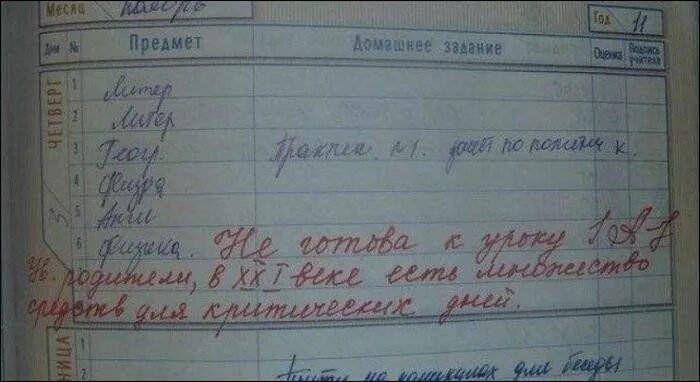 Месяц ноябрь Год 11
Дни № Предмет Домашнее задание Оценка Подпись учителя
ЧЕТВЕРГ 3
1 Литер
2 Литер
3 Геогр. Практич. №1. по
4 Физра
5 Англ
6 Физика. Не готова к уроку
Ув. родители, в XXI веке есть множество
средств для критических дней.
НИЦА
1
2 на каникулах для беседы